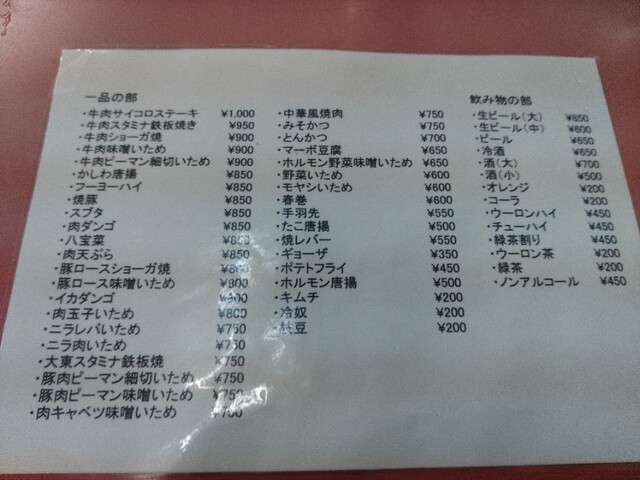 一品の部
・牛肉サイコロステーキ ¥1,000
・牛肉スタミナ鉄板焼き ¥950
・牛肉ショーガ焼 ¥900
・牛肉味噌いため ¥900
・牛肉ピーマン細切いため ¥900
・かしわ唐揚 ¥850
・フーヨーハイ ¥850
・焼豚 ¥850
・スブタ ¥850
・肉ダンゴ ¥850
・八宝菜 ¥850
・肉天ぷら ¥850
・豚ロースショーガ焼 ¥800
・豚ロース味噌いため ¥800
・イカダンゴ ¥800
・肉玉子いため ¥800
・ニラレバいため ¥750
・ニラ肉いため ¥750
・大東スタミナ鉄板焼 ¥750
・豚肉ピーマン細切いため ¥750
・豚肉ピーマン味噌いため ¥750
・肉キャベツ味噌いため ¥700
・中華風焼肉 ¥750
・みそかつ ¥750
・とんかつ ¥700
・マーボ豆腐 ¥650
・ホルモン野菜味噌いため ¥650
・野菜いため ¥600
・モヤシいため ¥600
・春巻 ¥600
・手羽先 ¥550
・たこ唐揚 ¥500
・焼レバー ¥550
・ギョーザ ¥350
・ポテトフライ ¥450
・ホルモン唐揚 ¥500
・キムチ ¥200
・冷奴 ¥200
・枝豆 ¥200
飲み物の部
・生ビール(大) ¥850
・生ビール(中) ¥600
・ビール ¥650
・冷酒 ¥650
・酒(大) ¥700
・酒(小) ¥500
・オレンジ ¥200
・コーラ ¥200
・ウーロンハイ ¥450
・チューハイ ¥450
・緑茶割り ¥450
・ウーロン茶 ¥200
・緑茶 ¥200
・ノンアルコール ¥450